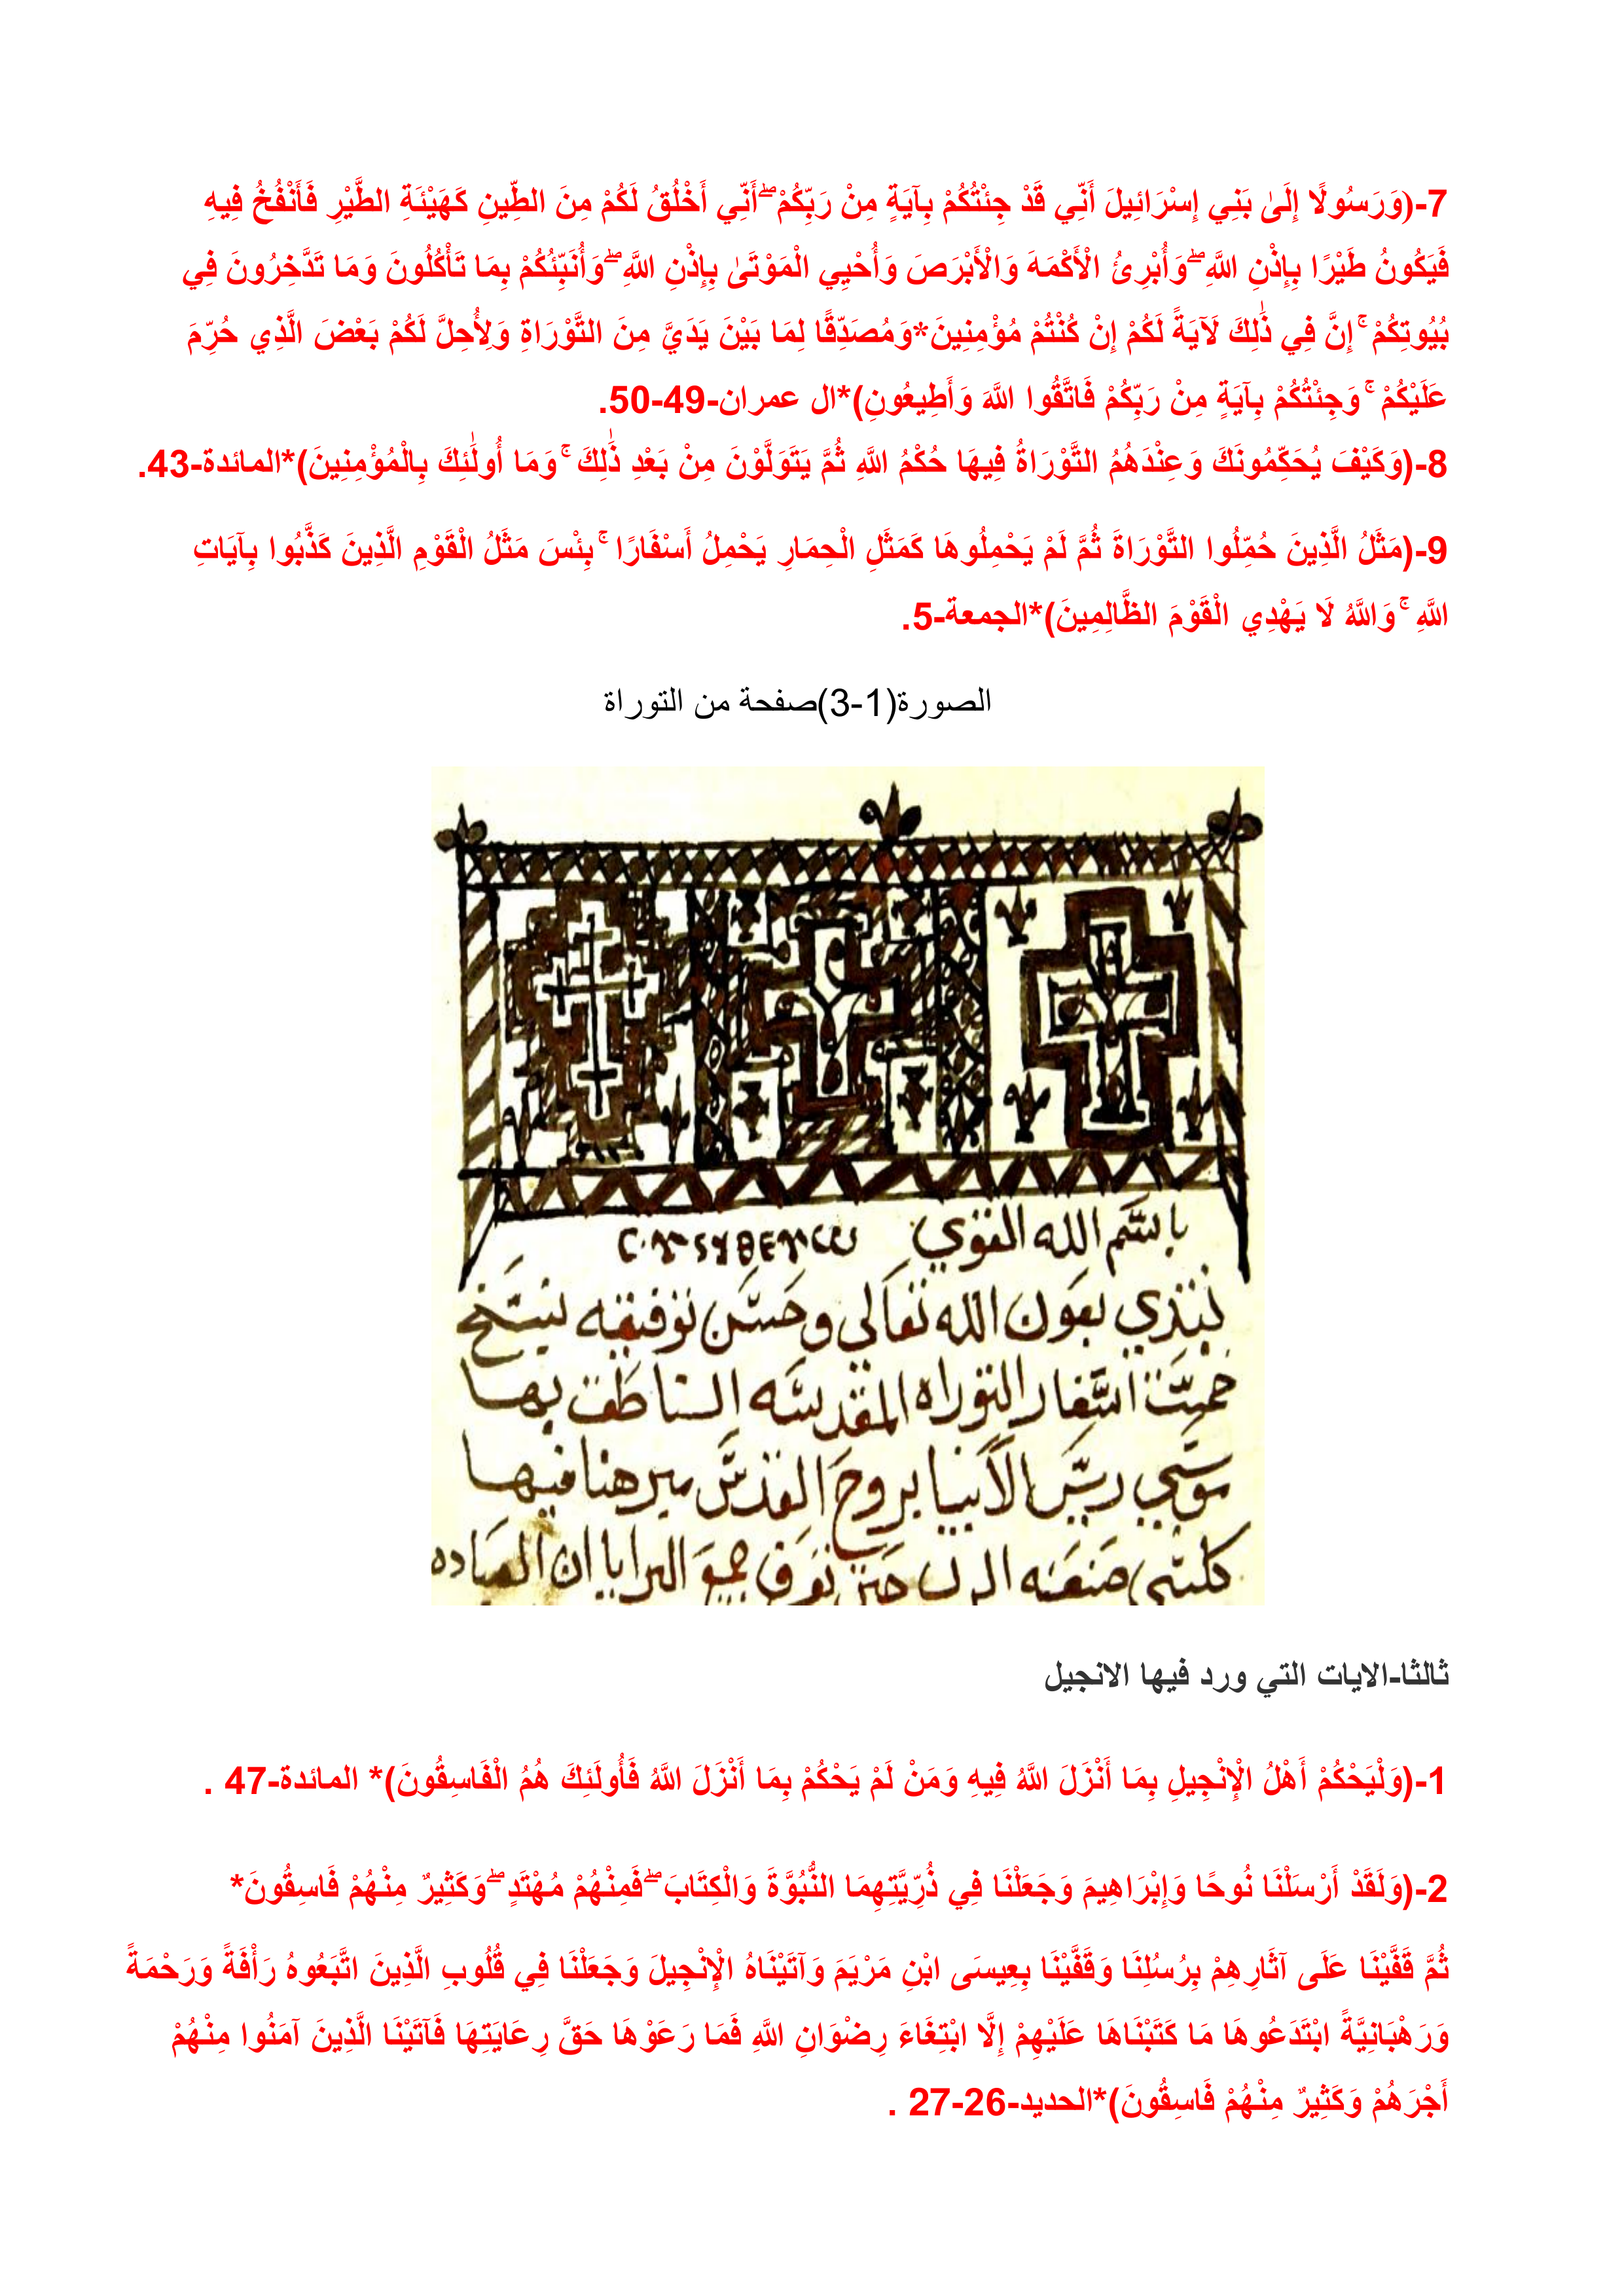 7-(وَرَسُولًا إِلَىٰ بَنِي إِسْرَائِيلَ أَنِّي قَدْ جِئْتُكُمْ بِآيَةٍ مِنْ رَبِّكُمْ ۖ أَنِّي أَخْلُقُ لَكُمْ مِنَ الطِّينِ كَهَيْئَةِ الطَّيْرِ فَأَنْفُخُ فِيهِ
فَيَكُونُ طَيْرًا بِإِذْنِ اللَّهِ ۖ وَأُبْرِئُ الْأَكْمَهَ وَالْأَبْرَصَ وَأُحْيِي الْمَوْتَىٰ بِإِذْنِ اللَّهِ ۖ وَأُنَبِّئُكُمْ بِمَا تَأْكُلُونَ وَمَا تَدَّخِرُونَ فِي
بُيُوتِكُمْ ۚ إِنَّ فِي ذَٰلِكَ لَآيَةً لَكُمْ إِنْ كُنْتُمْ مُؤْمِنِينَ*وَمُصَدِّقًا لِمَا بَيْنَ يَدَيَّ مِنَ التَّوْرَاةِ وَلِأُحِلَّ لَكُمْ بَعْضَ الَّذِي حُرِّمَ
عَلَيْكُمْ ۚ وَجِئْتُكُمْ بِآيَةٍ مِنْ رَبِّكُمْ فَاتَّقُوا اللَّهَ وَأَطِيعُونِ)*ال عمران-49-50.
8-(وَكَيْفَ يُحَكِّمُونَكَ وَعِنْدَهُمُ التَّوْرَاةُ فِيهَا حُكْمُ اللَّهِ ثُمَّ يَتَوَلَّوْنَ مِنْ بَعْدِ ذَٰلِكَ ۚ وَمَا أُولَٰئِكَ بِالْمُؤْمِنِينَ)*المائدة-43.
9-(مَثَلُ الَّذِينَ حُمِّلُوا التَّوْرَاةَ ثُمَّ لَمْ يَحْمِلُوهَا كَمَثَلِ الْحِمَارِ يَحْمِلُ أَسْفَارًا ۚ بِئْسَ مَثَلُ الْقَوْمِ الَّذِينَ كَذَّبُوا بِآيَاتِ
اللَّهِ ۚ وَاللَّهُ لَا يَهْدِي الْقَوْمَ الظَّالِمِينَ)*الجمعة-5.
الصورة(1-3)صفحة من التوراة
باسم الله القوي
نبتدي بعون الله تعالى وحسن توفيقه بنسخ
خمست اسفار التوراه المقدسه الناطق بها
موسي ريس الأنبيا بروح القدس يبرهنا فيها
كلشي صنعه الرب حين جميع البرايا ان
ثالثا-الايات التي ورد فيها الانجيل
1-(وَلْيَحْكُمْ أَهْلُ الْإِنْجِيلِ بِمَا أَنْزَلَ اللَّهُ فِيهِ وَمَنْ لَمْ يَحْكُمْ بِمَا أَنْزَلَ اللَّهُ فَأُولَئِكَ هُمُ الْفَاسِقُونَ)* المائدة-47 .
2-(وَلَقَدْ أَرْسَلْنَا نُوحًا وَإِبْرَاهِيمَ وَجَعَلْنَا فِي ذُرِّيَّتِهِمَا النُّبُوَّةَ وَالْكِتَابَ ۖ فَمِنْهُمْ مُهْتَدٍ ۖ وَكَثِيرٌ مِنْهُمْ فَاسِقُونَ*
ثُمَّ قَفَّيْنَا عَلَى آثَارِهِمْ بِرُسُلِنَا وَقَفَّيْنَا بِعِيسَى ابْنِ مَرْيَمَ وَآتَيْنَاهُ الْإِنْجِيلَ وَجَعَلْنَا فِي قُلُوبِ الَّذِينَ اتَّبَعُوهُ رَأْفَةً وَرَحْمَةً
وَرَهْبَانِيَّةً ابْتَدَعُوهَا مَا كَتَبْنَاهَا عَلَيْهِمْ إِلَّا ابْتِغَاءَ رِضْوَانِ اللَّهِ فَمَا رَعَوْهَا حَقَّ رِعَايَتِهَا فَآتَيْنَا الَّذِينَ آمَنُوا مِنْهُمْ
أَجْرَهُمْ وَكَثِيرٌ مِنْهُمْ فَاسِقُونَ)*الحديد-26-27 .